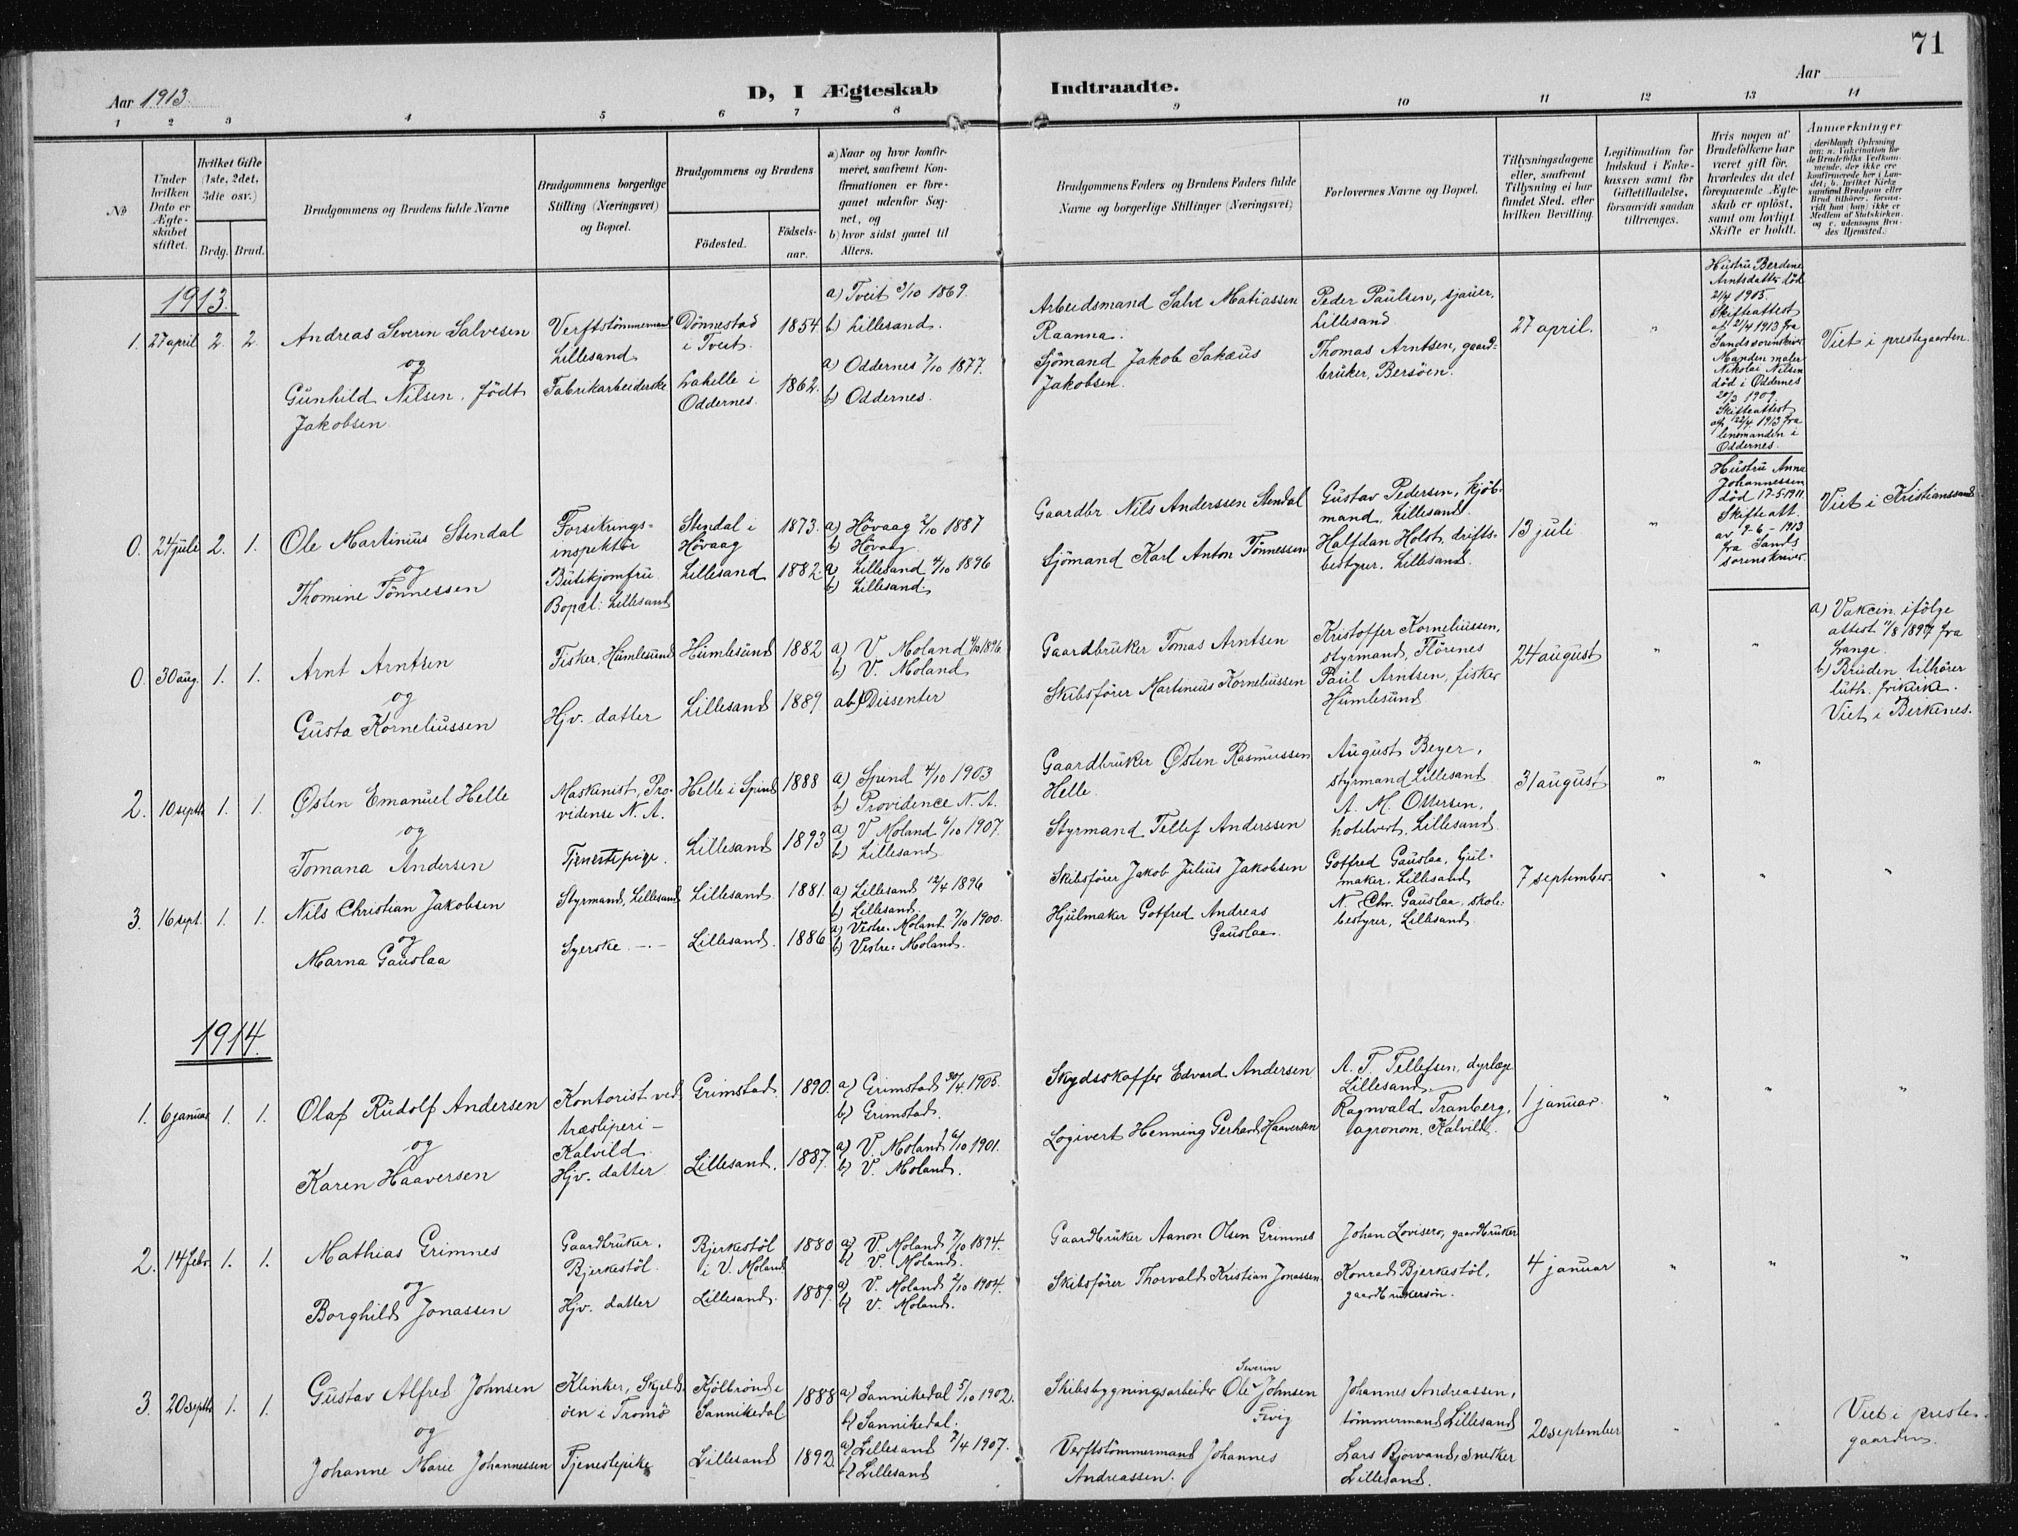 71
Aar 1913.
D, I Ægteskab Indtraadte.
Aar
1 2 3 4 5 6 7 8 9 10 11 12 13 14
No
Under hvilken Dato er Ægteskabet stiftet.
Hvilket Gifte (1ste, 2det, 3die osv.)
Brdg. Brud.
Brudgommens og Brudens fulde Navne
Brudgommens borgerlige Stilling (Næringsvei) og Bopæl.
Brudgommens og Brudens
Fødested.
Fødselsaar.
a) Naar og hvor konfirmeret, saafremt Konfirmationen er foregaaet udenfor Sognet, og
b) hvor sidst gaaet til Alters.
Brudgommens Faders og Brudens Faders fulde Navne og borgerlige Stillinger (Næringsvei)
Forlovernes Navne og Bopæl.
Tillysningsdagene eller, saafremt Tillysning ei har fundet Sted, efter hvilken Bevilling.
Legitimation for Indskud i Enkekassen samt for Giftetilladelse, forsaavidt saadan tiltrænges.
Hvis nogen af Brudefolkene har været gift før, hvorledes da det foregaaende Ægteskab er opløst, samt om lovligt Skifte er holdt.
Anmærkninger
1913.
1. 27 april 2. 2.
Andreas Severin Salvesen
og
Gunhild Nilsen, født
Jakobsen
Verftstømmermand
Lillesand
Fabrikarbeiderske
Dønnestad
i Tveit.
Oddernes.
1854
1862
a) Tveit 3/10 1869.
b) Lillesand.
a) Oddernes 7/10 1877.
b) Oddernes.
Arbeidsmand Salve Matiassen
Raanna.
Sjømand Jakob Sakæus
Jakobsen.
Peder Paulsen, sjauer,
Lillesand
Thomas Arntsen, gaard-
bruker, Bersøen.
27 april.
"
Hustru Berdine
Arntsdatter død
21/4 1905.
Skifteattest
af 21/4 1913 fra
Sands sorenskriver
Manden maler
Nikolai Nilsen
død i Oddernes
20/3 1909.
Skifteattest
af 22/4 1913 fra
lensmanden i
Oddernes.
Viet i prestegaarden.
0. 24 juli 2. 1.
Ole Martinius Stendal
og
Thomine Tønnessen
Forsikrings-
inspektør
Butikjomfru
Bopæl: Lillesand
Stendal i
Høvaag
Lillesand
1873.
1882.
a) Høvaag 2/10 1887
b) Høvaag
a) Lillesand 4/10 1896
b) Lillesand
Gaardbr. Nils Anderssen Stendal
Sjømand Karl Anton Tønnessen
Gustav Pedersen, kjøb-
mand, Lillesand
Halfdan Holst, drifts-
bestyrer, Lillesand.
13 juli
"
Hustru Anna
Johannessen
død 17-5-1911.
Skifteatt.
av 9-6-1913
fra Sands
sorenskriver.
Viet i Kristianssand
0. 30 aug. 1. 1.
Arnt Arntsen
og
Gusta Korneliussen
Fisker, Humlesund
Hjv. datter
Humlesund
Lillesand
1882
1889.
a) V. Moland 4/10 1896
b) V. Moland
ab) Dissenter
Gaardbruker Tomas Arntsen
Skibsfører Martinius Korneliussen
Kristoffer Korneliussen,
styrmand, Flörenes
Paul Arntsen, fisker
Humlesund
24 august
"
"
a) Vakcin. ifølge
attest 11/8 1897 fra
Frange.
b) Bruden tilhører
luth. frikirke.
Viet i Birkenes.
2. 10 septb. 1. 1.
Østen Emanuel Helle
og
Tomana Andersen
Maskinist, Pro-
vidense N. A.
Tjenestepige.
Helle i Spind
Lillesand
1888
1893
a) Spind 4/10 1903
b) Providence N. A.
a) V. Moland 6/10 1907.
b) Lillesand
Gaardbruker Østen Rasmussen
Helle.
Styrmand Tellef Anderssen
August Beyer,
styrmand Lillesand
A. M. Ottersen,
hotelvert, Lillesand.
31 august
"
"
3. 16 sept. 1. 1.
Nils Christian Jakobsen
og
Marna Gauslaa
Styrmand, Lillesand
Syerske —·—
Lillesand
Lillesand.
1881.
1886
a) Lillesand 12/4 1896
b) Lillesand.
a) Vestre-Moland 7/10 1900.
b) Vestre-Moland.
Skibsfører Jakob Julius Jakobsen
Hjulmaker Gotfred Andreas
Gauslaa.
Gotfred Gauslaa, hjul-
maker, Lillesand
N. Chr. Gauslaa, skole-
bestyrer, Lillesand.
7 september
"
"
"
1914.
1. 6 januar 1. 1.
Olaf Rudolf Andersen
og
Karen Haaversen
Kontorist ved
træsliperi —
Kalvild.
Hjv. datter
Grimstad
Lillesand.
1890.
1887.
a) Grimstad 30/4 1905.
b) Grimstad.
a) V. Moland 6/10 1901.
b) V. Moland.
Skydsskaffer Edvard Andersen
Logivert Henning Gerhard Haaversen
A. T. Tellefsen, dyrlæge
Lillesand.
Ragnvald Tranberg,
agronom, Kalvild.
1 januar.
"
"
"
2. 14 febr. 1. 1.
Mathias Grimnes
og
Borghild Jonassen
Gaardbruker,
Bjerkestøl.
Hjv. datter
Bjerkestøl
i V. Moland
Lillesand.
1880
1889.
a) V. Moland 7/10 1894.
b) V. Moland.
a) V. Moland 2/10 1904.
b) V. Moland.
Gaardbruker Aanon Olsen Grimnes
Skibsfører Thorvald Kristian Jonassen
Johan Lovisero, gaardbruker
Konrad Bjerkestøl,
gaardbrukersøn.
4 januar
"
"
"
3. 20 septb. 1. 1.
Gustav Alfred Johnsen
og
Johanne Marie Johannessen
Klinker, Skjelds
øen i Tromø
Tjenestepike
Kjølbrønd i
Sannikedal
Lillesand
1888
1892
a) Sannikedal 5/10 1902.
b) Sannikedal.
a) Lillesand 7/4 1907.
b) Lillesand
Skibsbygningsarbeider Ole Severin Johnsen
Fivig
Verftstømmermand Johannes
Andreassen.
Johannes Andreassen,
tømmermand Lillesand
Lars Bjorvand, snedker
Lillesand.
20 september
"
"
Viet i preste-
gaarden.